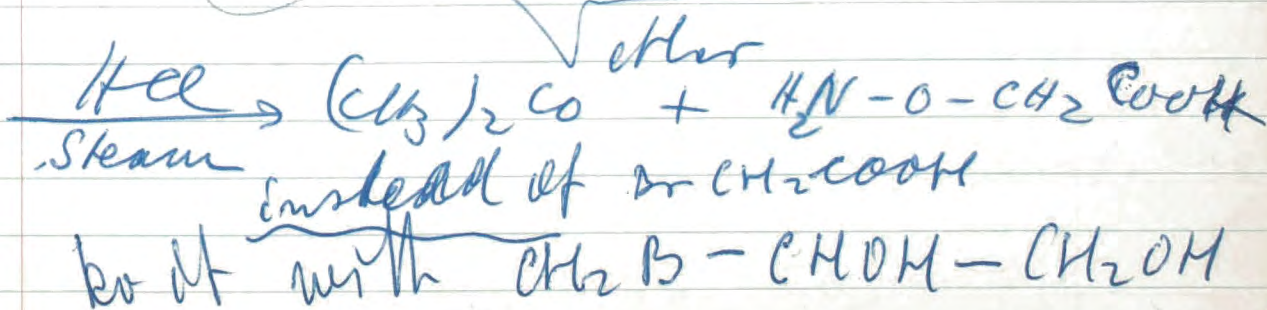 ether
HCl → (CH3)2 CO + H2N-O-CH2 COOH
Steam
instead of Br CH2COOH
do it with CH2 B - CHOH - CH2OH